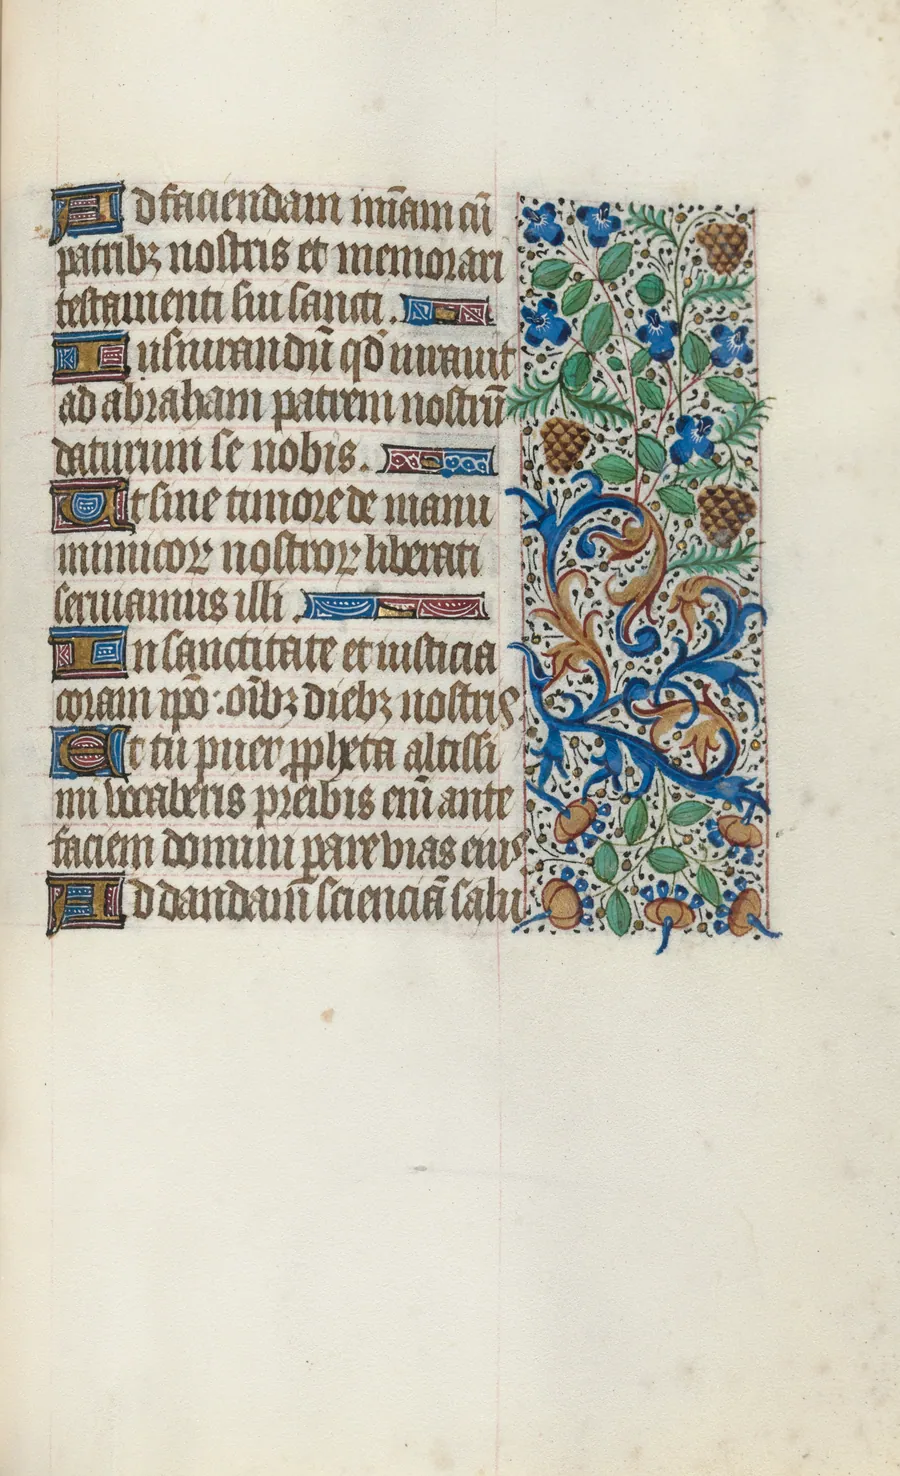 Ad faciendam mi̅am cu̅
patribꝫ nostris et memorari
testamenti sui sancti.
Iusiurandu̅ qd̅ iurauit
ad abraham patrem nostru̅
daturum se nobis.
Ut sine timore de manu
inimicoꝝ nostroꝝ liberati
seruiamus illi
In sanctitate et iusticia
coram ip̅o: oi̅bꝫ diebꝫ nostris
Et tu puer ꝓpheta altissi
mi vocaberis preibis eni̅ ante
faciem domini parare vias eius
Ad dandam̅ sciencia̅ salu